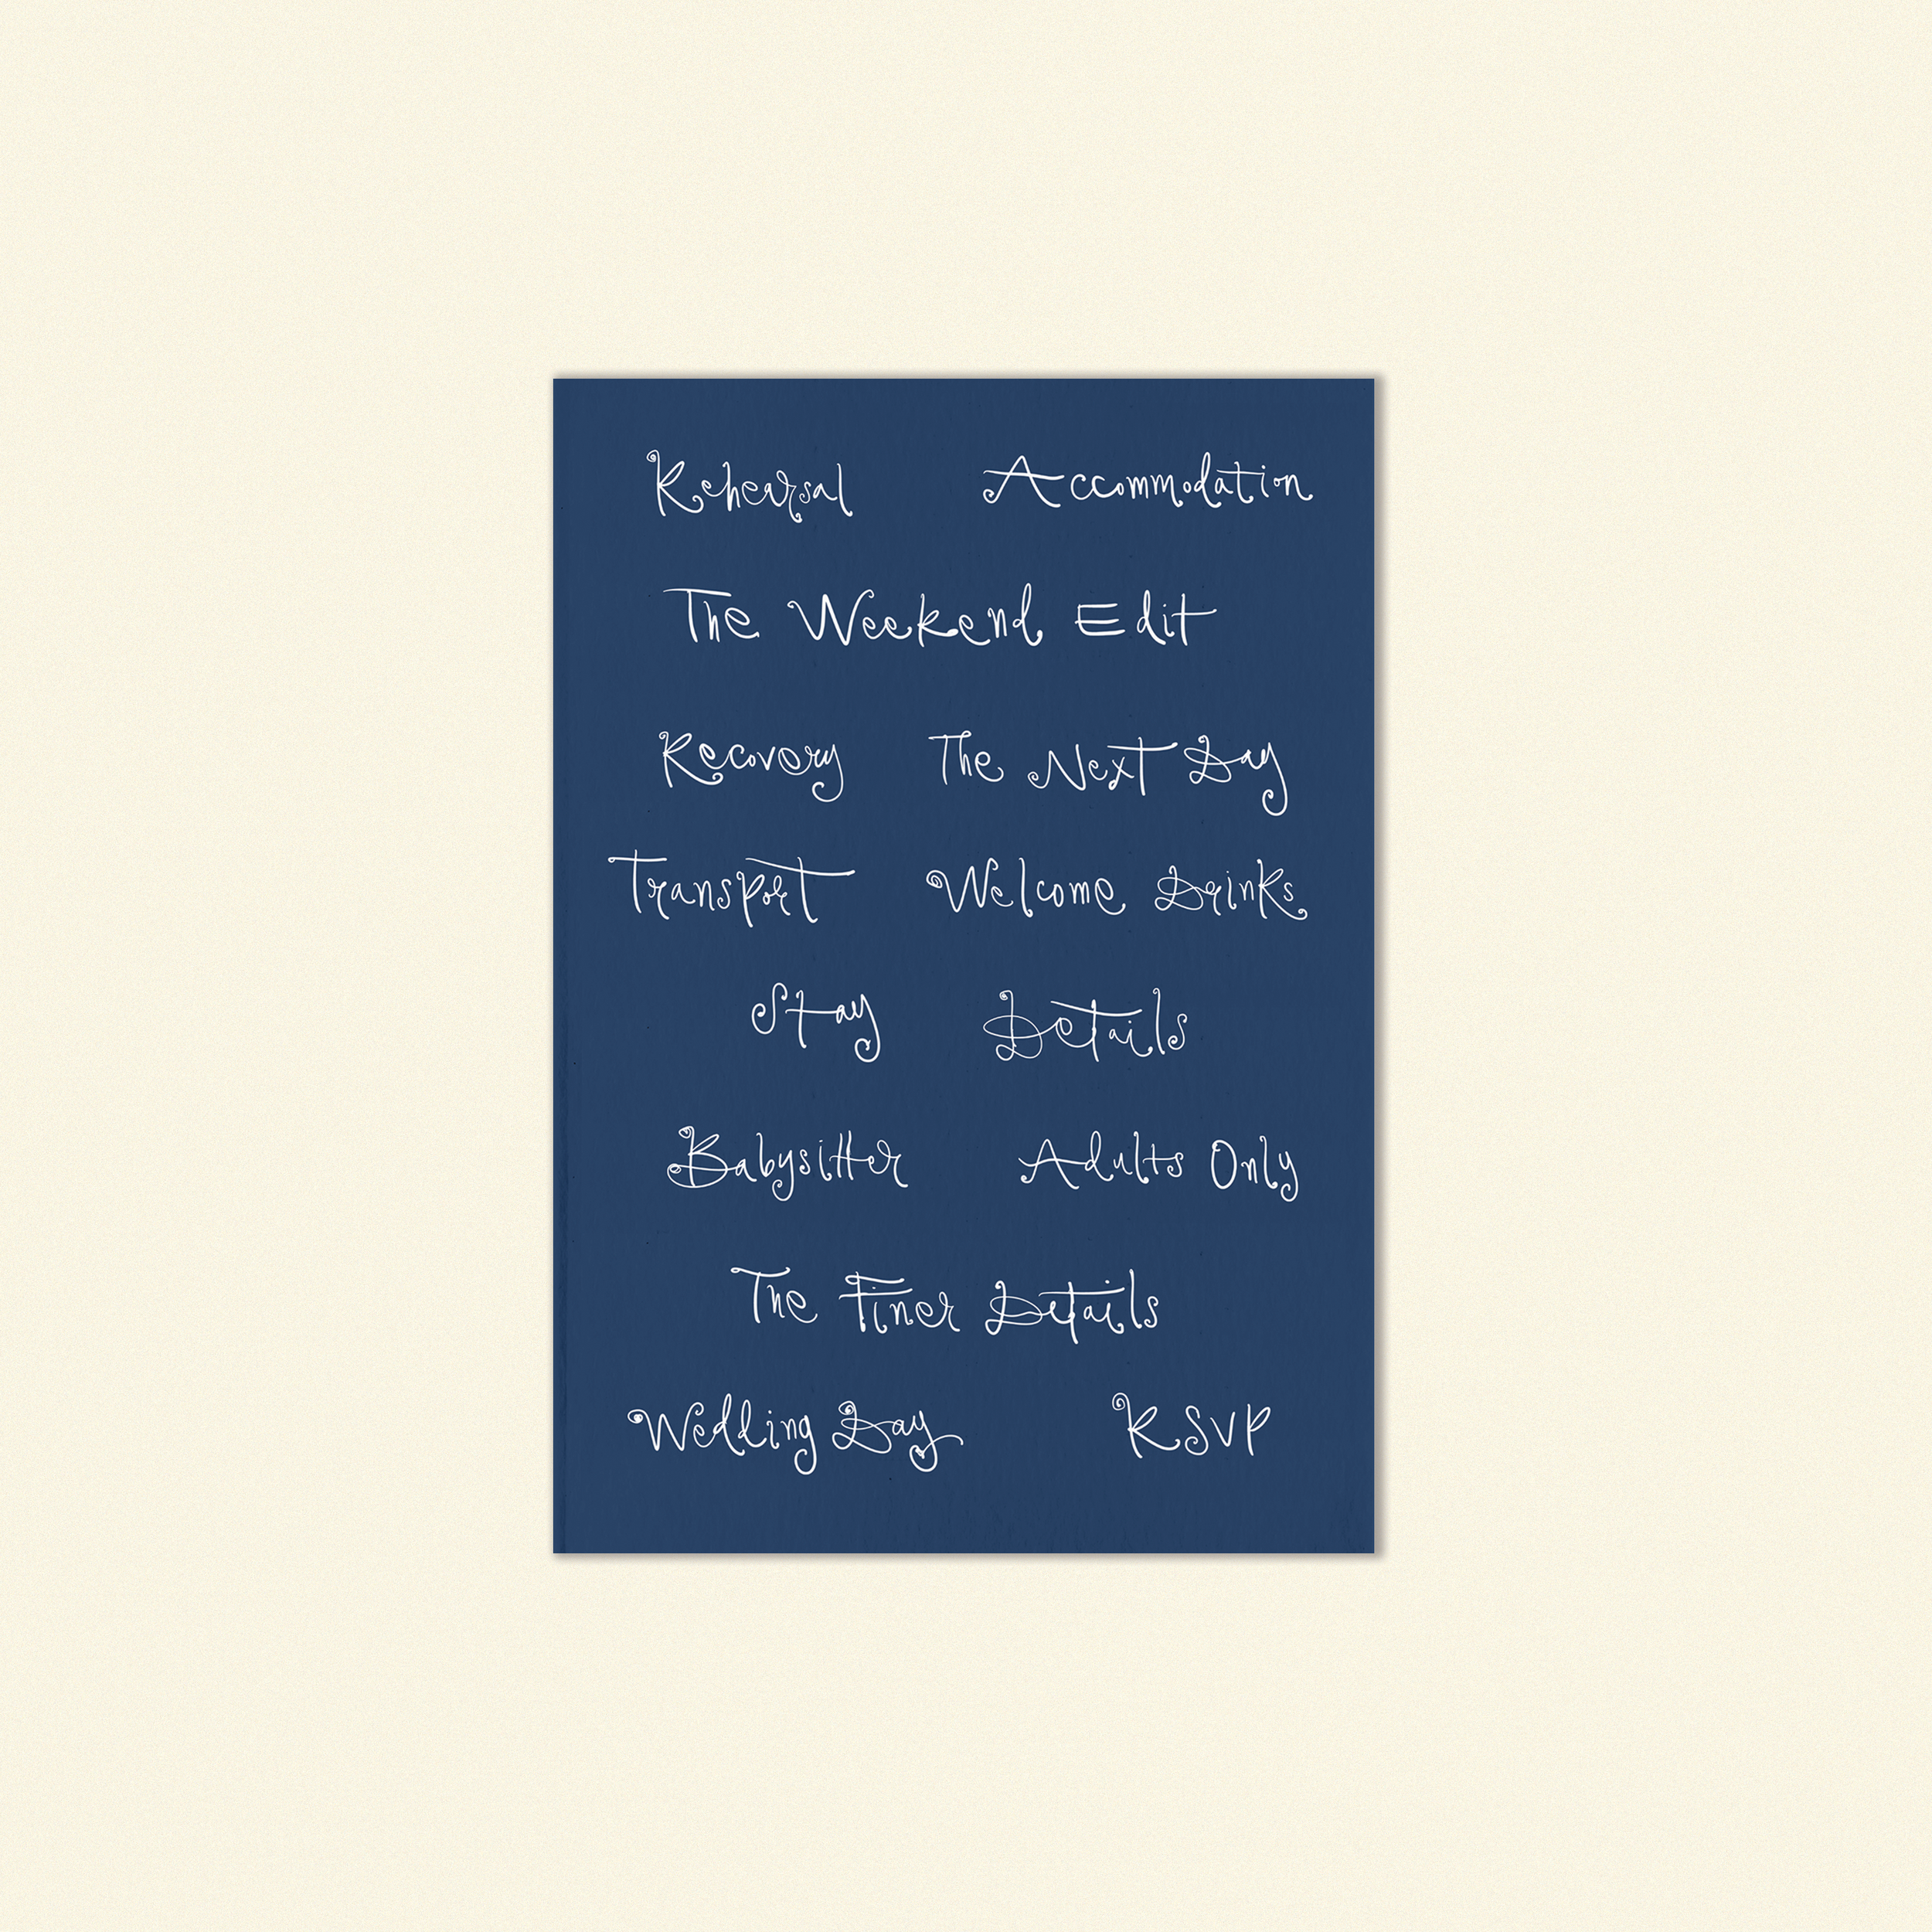 Rehearsal Accommodation
The Weekend Edit
Recovery The Next Day
Transport Welcome Drinks
Stay Details
Babysitter Adults Only
The Finer Details
Wedding Day RSVP